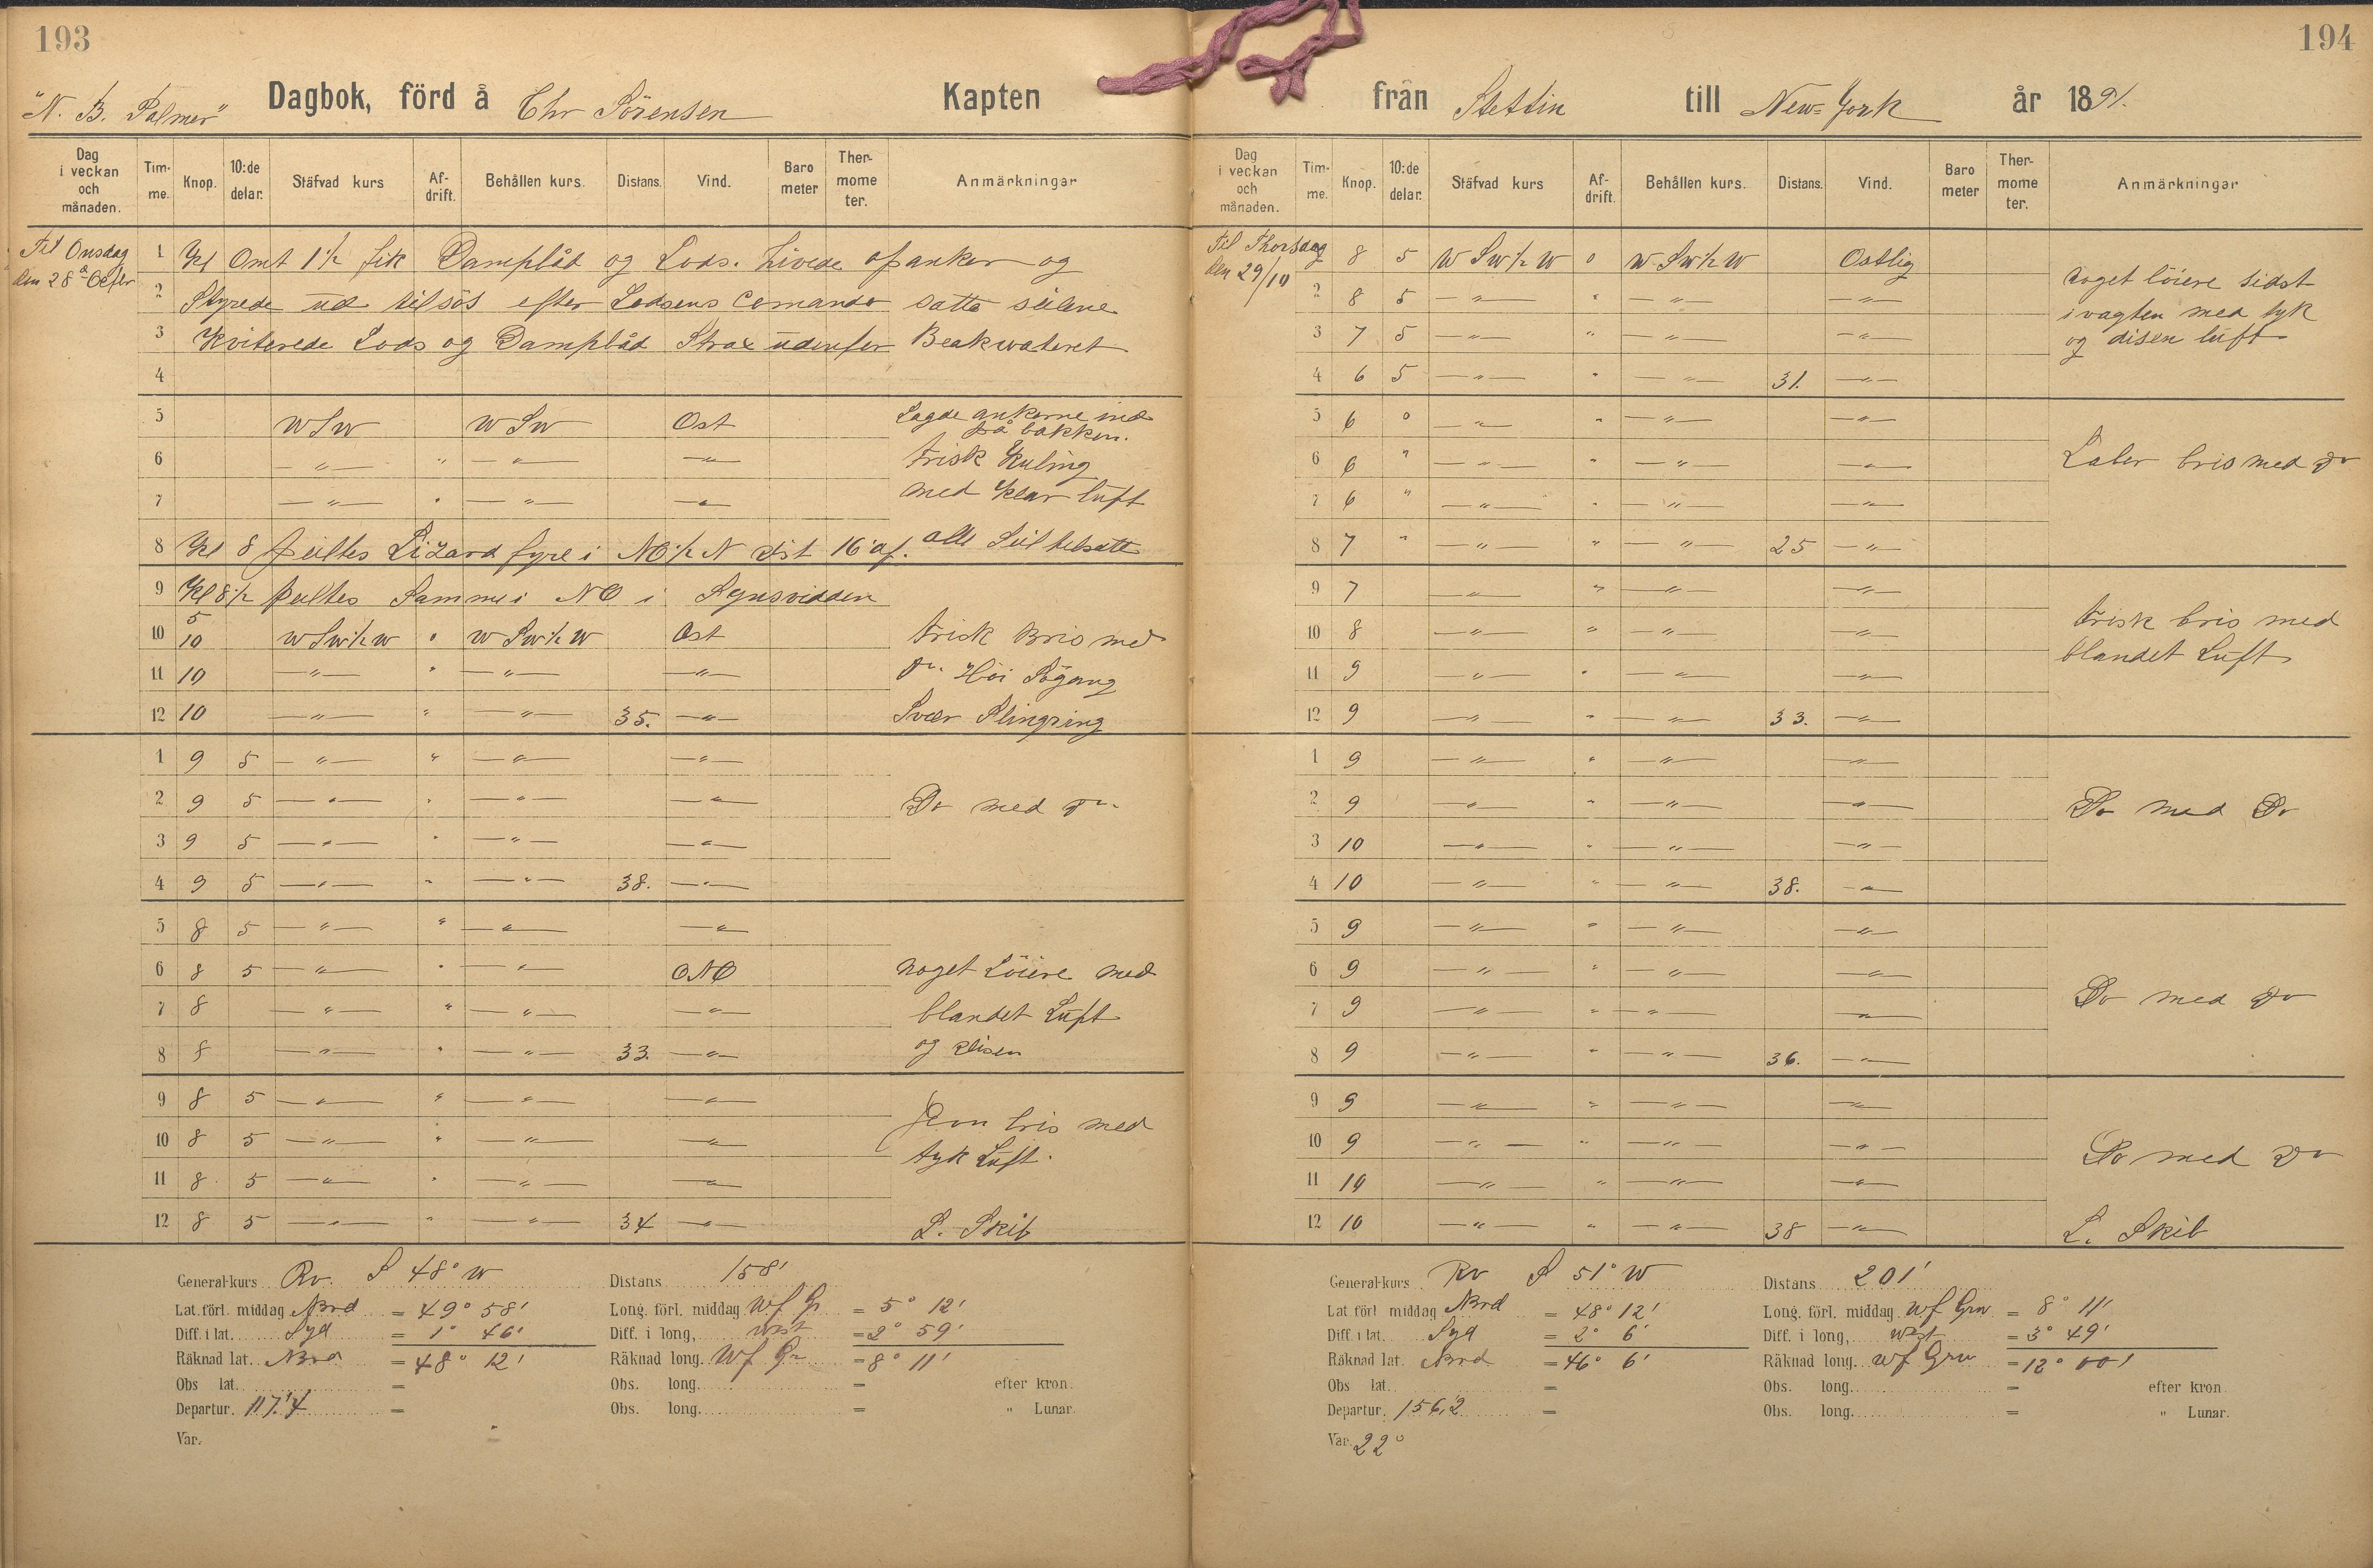 193
"N. B. Palmer" Dagbok, förd å Chr Sörensen Kapten
Dag i veckan och månaden. Tim-me. Knop. 10:de delar. Stäfvad kurs Af-drift. Behållen kurs. Distans. Vind. Baro meter Ther-mome ter. Anmärkningar
Til Onsdag 1 Kl Omt 1 1/2 fik Dampbåd og Lods. Hivede op anker og
den 28de Octbr 2 Styrede ud tilsös efter Lodsens Comando satte seilene
3 Kviterede Lods og Dampbåd Strax udenfor Beakwateret
4
5 WSW WSW Ost Lagde ankerne ind på bakken.
6 —"— " —"— —"— frisk Kuling
7 —"— " —"— —"— med Klar luft
8 Kl 8 peiltes Lizard fyre i NO 1/2 N dist 16' af. alle Seil tilsatte
9 Kl 8 1/2 peiltes Samme i NO i Synsvidden
10 5 10 WSW 1/2 W 0 WSW 1/2 W Ost frisk Bris med
11 10 —"— " —"— —"— Do. Höi Sögang
12 10 —"— " —"— 35. —"— Svær Slingring
1 9 5 —"— " —"— —"—
2 9 5 —"— " —"— —"— Do med Do.
3 9 5 —"— " —"— —"—
4 9 5 —"— " —"— 38. —"—
5 8 5 —"— " —"— —"—
6 8 5 —"— " —"— ONO noget Löiere med
7 8 —"— " —"— —"— blandet Luft
8 8 —"— " —"— 33. —"— og disen
9 8 5 —"— " —"— —"— Jevn bris med
10 8 5 —"— " —"— —"— tyk Luft.
11 8 5 —"— " —"— —"—
12 8 5 —"— " —"— 34 —"— L. Skib
General-kurs Rv. S 48° W Distans 158'
Lat. förl. middag Nord = 49° 58' Long. förl. middag W f Gr = 5° 12'
Diff. i lat. Syd = 1° 46' Diff. i long, west = 2° 59'
Räknad lat. Nord = 48° 12' Räknad long. W f Gr = 8° 11'
Obs lat. = Obs. long. = efter kron.
Departur. 117,4 = Obs. long. = " Lunar.
Var.
194
från Stettin till New-York år 1891.
Dag i veckan och månaden. Tim-me. Knop. 10:de delar. Stäfvad kurs Af-drift. Behållen kurs. Distans. Vind. Baro meter Ther-mome ter. Anmärkningar
Til Thorsdag 8 5 WSW 1/2 W 0 WSW 1/2 W Ostlig noget löiere sidst
den 29/10 2 8 5 —"— " —"— —"— i vagten med tyk
3 7 5 —"— " —"— —"— og disen luft
4 6 5 —"— " —"— 31. —"—
5 6 0 —"— " —"— —"—
6 6 " —"— " —"— —"— Laber bris med Do
7 6 " —"— " —"— —"—
8 7 " —"— " —"— 25 —"—
9 7 —"— " —"— —"— frisk bris med
10 8 —"— " —"— —"— blandet Luft
11 9 —"— " —"— —"—
12 9 —"— " —"— 33. —"—
1 9 —"— " —"— —"—
2 9 —"— " —"— —"— Do med Do
3 10 —"— " —"— —"—
4 10 —"— " —"— 38. —"—
5 9 —"— " —"— —"—
6 9 —"— " —"— —"— Do med Do
7 9 —"— " —"— —"—
8 9 —"— " —"— 36. —"—
9 9 —"— " —"— —"—
10 9 —"— " —"— —"— Do med Do
11 10 —"— " —"— —"—
12 10 —"— " —"— 38 —"— L. Skib
General-kurs Rv S 51° W Distans 201'
Lat förl middag Nord = 48° 12' Long. förl. middag W f Grw = 8° 11'
Diff. i lat. Syd = 2° 6' Diff. i long, west = 3° 49'
Räknad lat. Nord = 46° 6' Räknad long. W f Grw = 12° 00'
Obs lat. = Obs. long. = efter kron.
Departur. 156,2 = Obs. long. = " Lunar.
Var. 22°